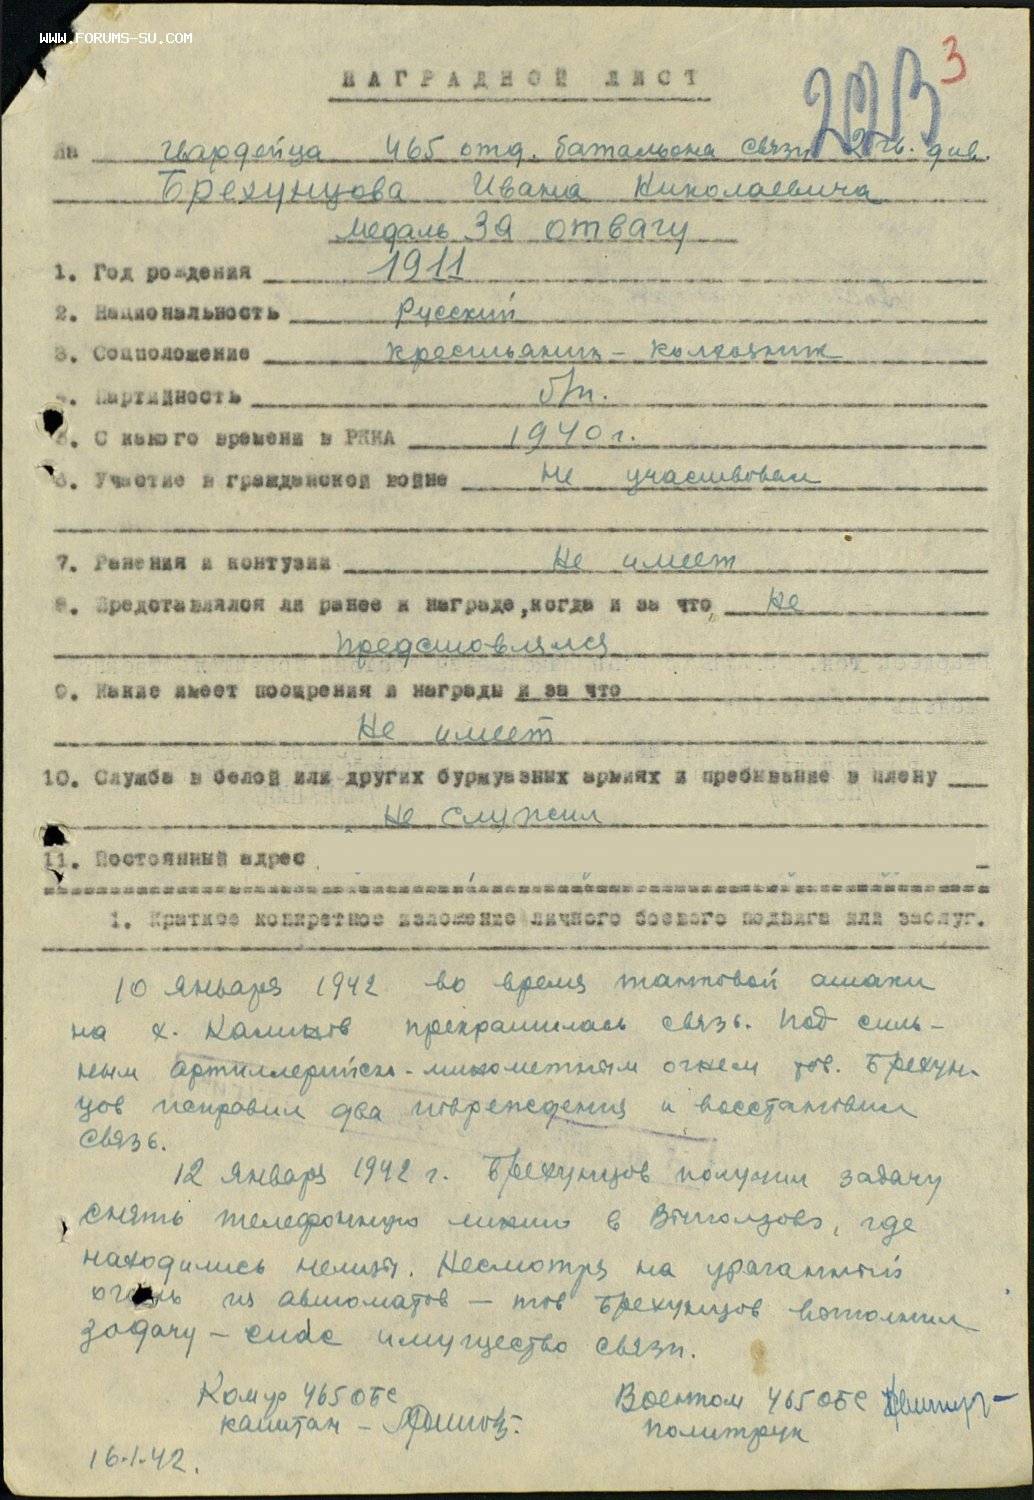 WWW.FORUMS-SU.COM
223
3
НАГРАДНОЙ ЛИСТ
На гвардейца 465 отд. батальона связи 2 гв. див.
Брехунцова Ивана Николаевича
медаль За отвагу
1. Год рождения 1911
2. Национальность Русский
3. Соцположение крестьянин - колхозник
4. Партийность б/п.
5. С какого времени в РККА 1940 г.
6. Участие в гражданской войне Не участвовал
7. Ранения и контузии Не имеет
8. Представлялся ли ранее к награде, когда и за что Не
представлялся
9. Какие имеет поощрения и награды и за что
Не имеет
10. Служба в белой или других буржуазных армиях и пребывание в плену
Не служил
11. Постоянный адрес
1. Краткое конкретное изложение личного боевого подвига или заслуг.
10 января 1942 во время танковой атаки
на х. прекратилась связь. Под силь-
ным артиллерийск.-минометным огнем тов. Брехун-
цов исправил два повреждения и восстановил
связь.
12 января 1942 г. Брехунцов получил задачу
снять телефонную линию в, где
находились немцы. Несмотря на ураганный
огонь из автоматов — тов Брехунцов выполнил
задачу — спас имущество связи.
Комир 465 ОБС
капитан -
Военком 465 ОБС
политрук
16.1.42.